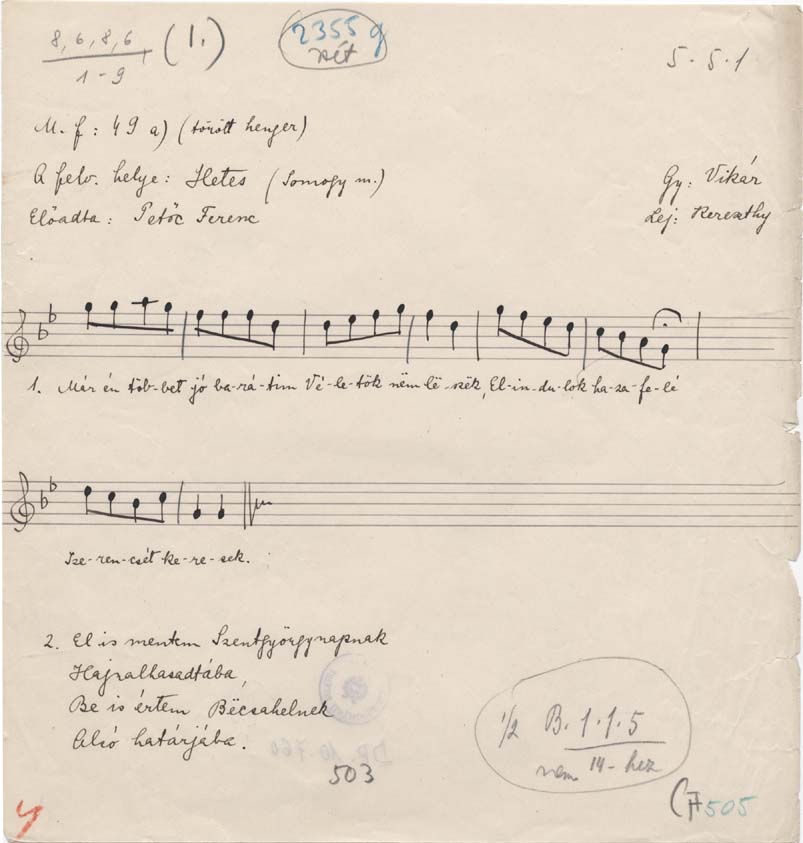 8, 6, 8, 6, (1.)
1 - 9
2355 g
5 - 5 - 1
M. f : 49 a) (törött henger)
A felv. helye: Hetes (Somogy m.)
Gy: Vikár
Előadta : Petőc Ferenc
Lej: Kereszthy
1. Már én töb-bet jó ba-rá-tim Vé-le-tök nëm lë-szëk, El-in-du-lok ha-za-fe-lé
Sze-ren-csét ke-re-sek.
2. El is mentem Szentgyörgynapnak
Hajnalhasadtába,
Be is értem Bëcsahelnek
Alsó határjába.
½ B. 1. 1. 5
nem 14-hez
503
505